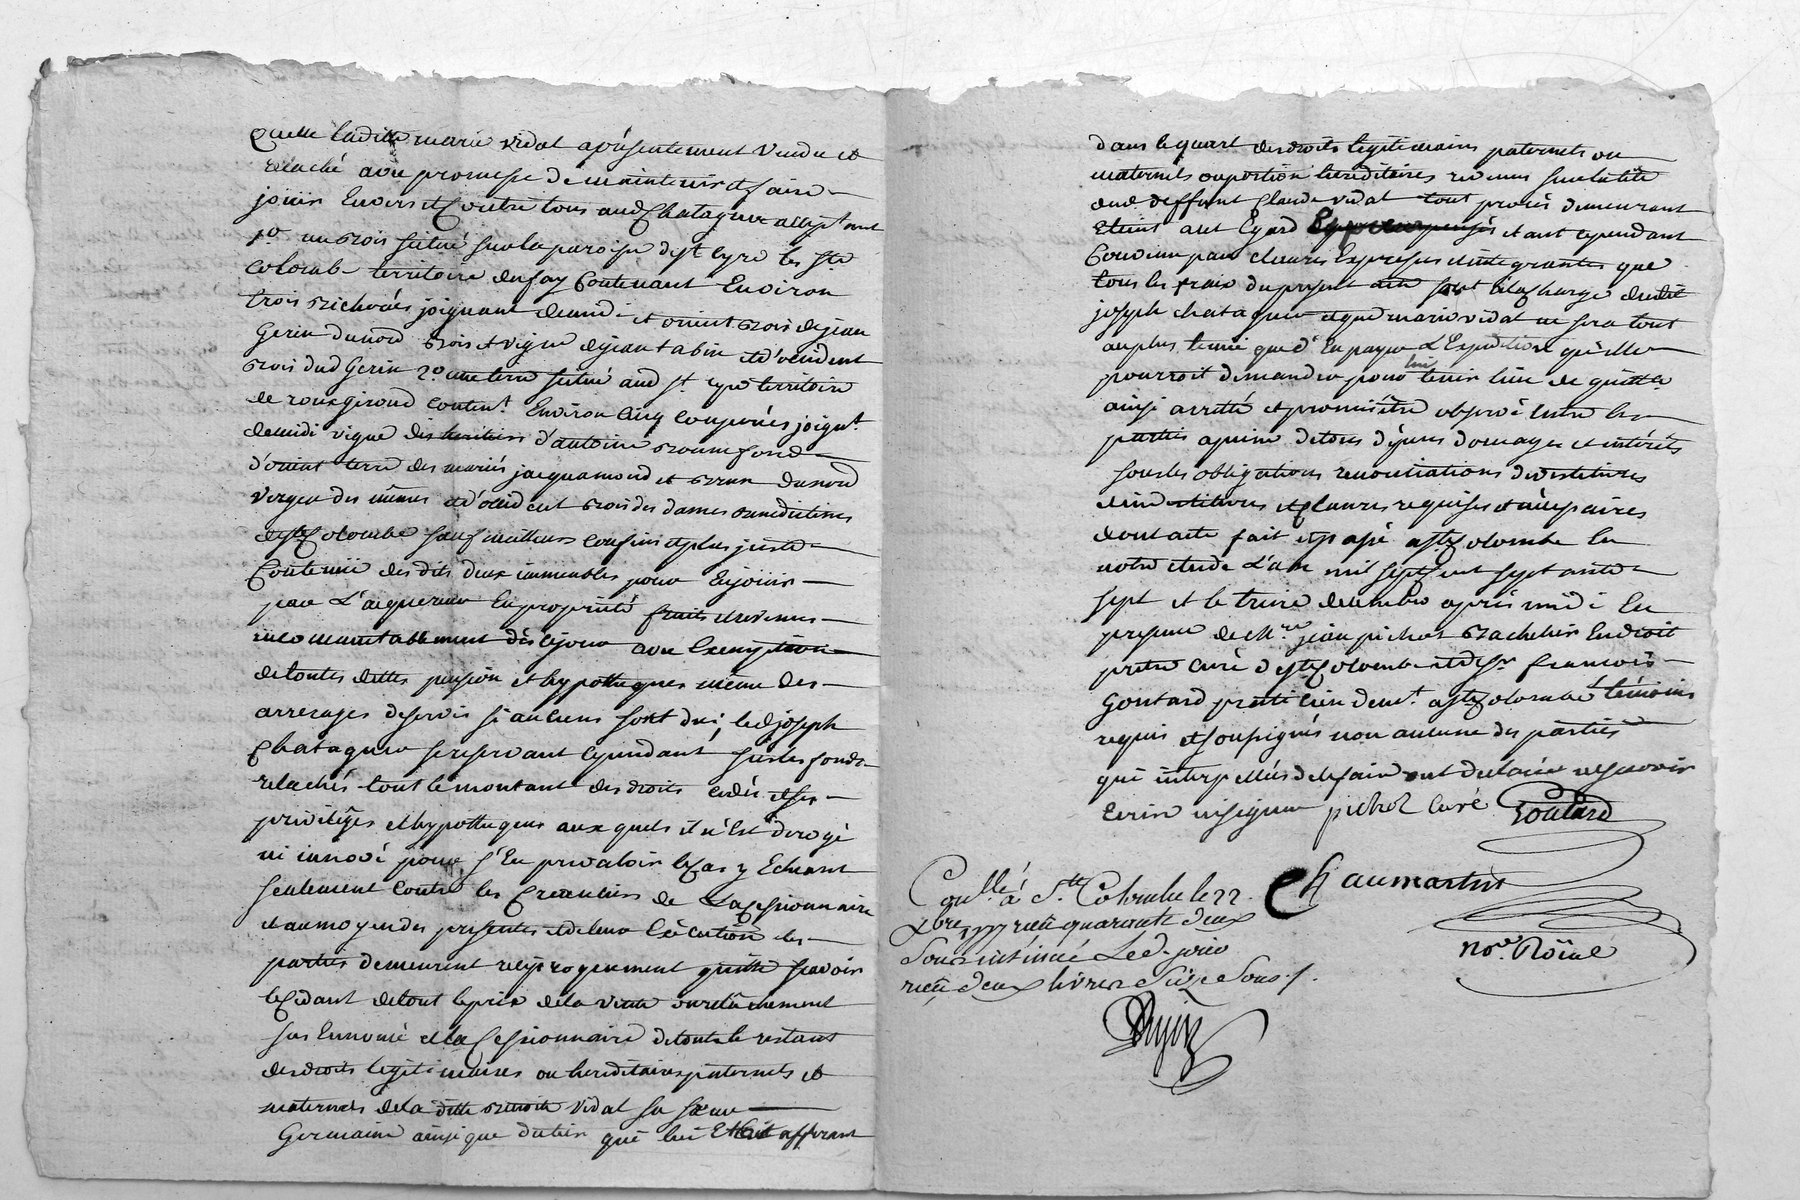 quelle laditte marie vidal a présentement vendu et
relaché avec promesse de maintenir et faire
jouir Envers et Contre tous aud Chatagner accept ant
1o un bois situé sur la paroisse de st Cyr les ste
Colombe territoire du fay Contenant Environ
trois bicherées joignant de midi et orient bois de jean
Gerin du nord bois et vigne de jean tabin et d'occident
bois dud Gerin 2o une terre située aud st Cyr territoire
de rouxgiroud content. Environ Cinq couperées joignt.
de midi vigne des heritiers d'antoine bonnefond
d'orient terre des mariés jacquamond et brun du nord
verger des mêmes et d'occident bois des dames benedictines
de ste Colombe sauf meilleurs confins et plus juste
Contenüe des dits deux immeubles pour En jouir
par L'acquereur En propriété fruits et revenus
incommutablement dès ce jour avec Exemption
de toutes dettes pension et hypotheques même des
arrerages de servis si aucuns sont dus, led joseph
Chatagner se reservant cependant sur les fonds
relachés tout le montant des droits cedés et ses
privilêges et hypotheques aux quels il n'Est derogé
ni innové pour s'En prevaloir le Cas y Echeant
seulement Contre les Creanciers de La Cessionnaire
et au moyen des presentes et de leur Exécution les
parties demeurent reciproquement quittes savoir
le Cedant de tout le prix de la vente ou relâchement
sus Ennoncé et la Cessionnaire de tout le restant
des droits legitimaires ou hereditaires paternels et
maternels de la ditte benoite vidal sa sœur
Germaine ainsi que du tier qui lui Etoit afferant
dans le quart des droits legitimaires paternels ou
maternels ou portion hereditaires revenus sur la tête
dud deffunt Claude vidal tout procès demeurant
Eteint a cet Egard et ant cependant
Convenu par clauses Expresses et intégrantes que
tous les fraix du present acte sont à la Charge dudit
joseph chatagner et que marie vidal ne sera tout
au plus tenüe que d'En payer L'Expedition qu'elle
pourroit demander pour lui tenir lieu de quittce
ainsi arretté et promis être observé Entre les
parties a peine de tous dépens domages et intérêts
sous les obligations renonciations devestitures
et investitures et Clauses requises et nécessaires
dont acte fait et passé a ste Colombe En
notre etude L'an mil sept cent sept ante
sept et le treize decembre après midi En
presence de Mre jean pichot bachelier En droit
pretre curé de ste Colombe et de sr françois
Goutard praticien demt. a ste Colombe témoins
requis et soussignés non aucune des parties
qui interpellées de le faire ont declaré ne savoir
Ecrire ni signer pichot Curé Goutard
Conllé. à Ste. Colombe le 22. Chaumartin
Xbre 1777 reçu quarante deux
Sous insinué Led. jour nore. Roïal
reçu deux livres Seize Sous./.